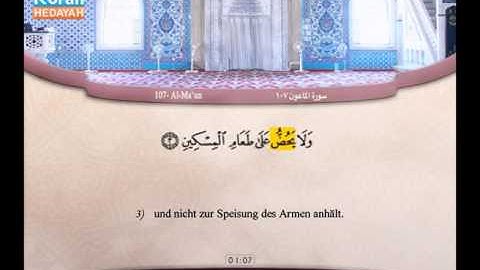 Koran
HEDAYAH
107- Al-Ma'un
سورة الماعون ١٠٧
وَلَا يَحُضُّ عَلَىٰ طَعَامِ الْمِسْكِينِ ﴿٣﴾
3) und nicht zur Speisung des Armen anhält.
01:07